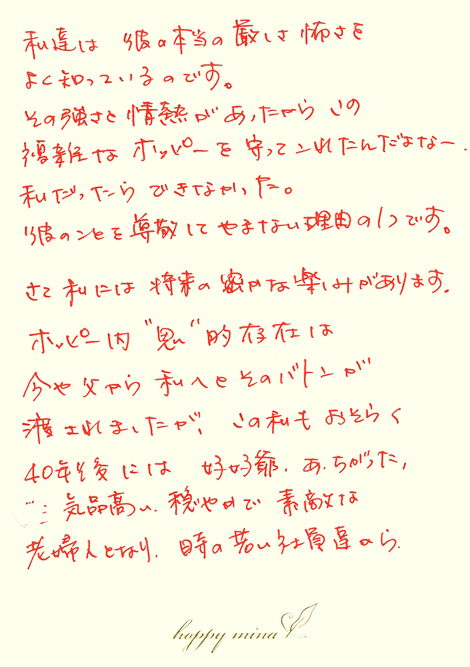 私達は 彼の本当の厳しさ怖さを
よく知っているのです。
その強さと情熱があったからこの
複雑な ホッピーを 守ってこれたんだよなー.
私だったら できなかった。
彼のことを尊敬してやまない理由の1つです。
さて 私には 将来の密かな楽しみがあります.
ホッピー内 "思い" 的存在は
今や父から 私へと そのバトンが
渡されましたが、この私も おそらく
40年後には 好好爺. あ.ちがった,
…: 気品高い. 穏やかで 素敵な
老婦人となり. 時の若い社員達から.
hoppy mina